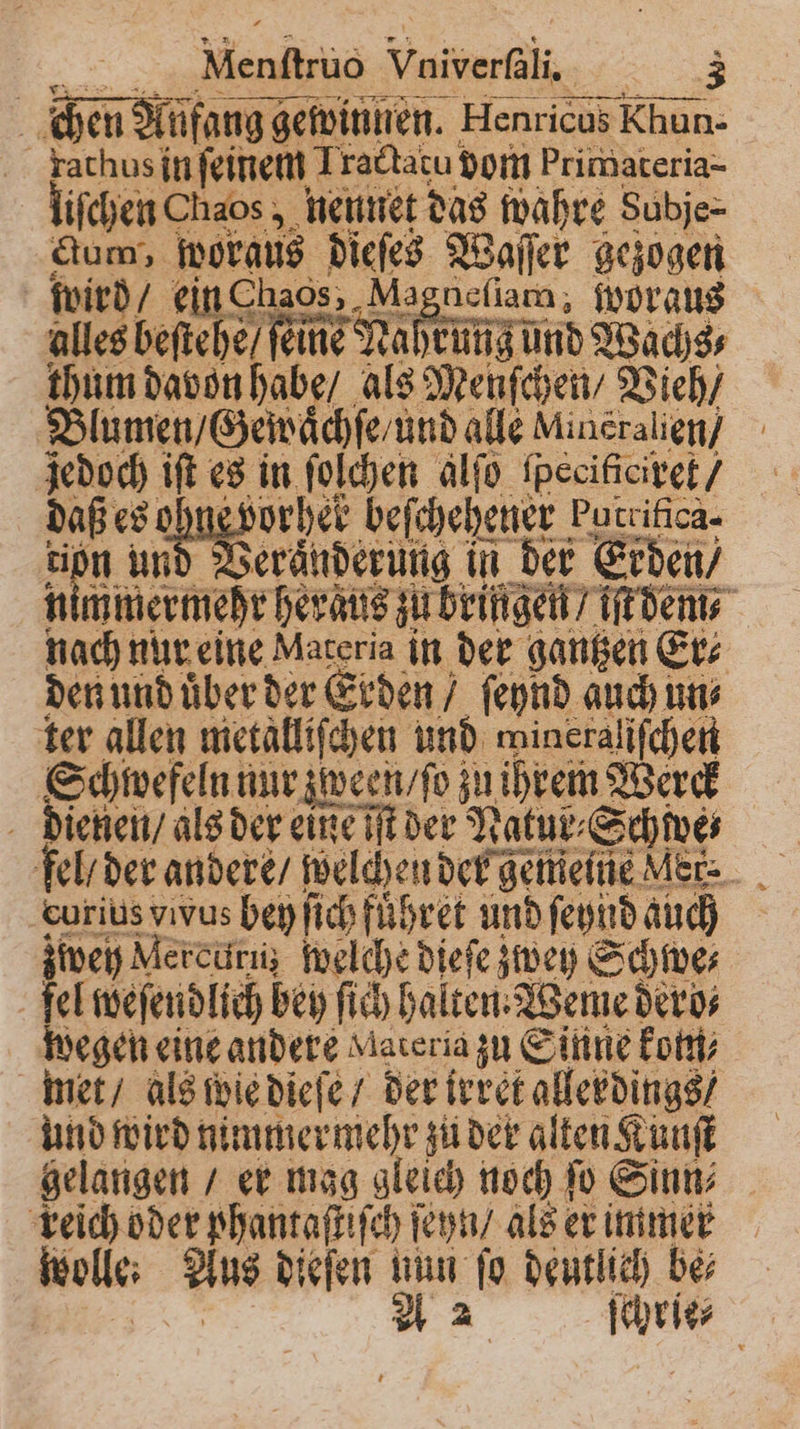 Menſtruo Vniverſali. 3
chen Anfang gewinnen. Henricus Khun-
rathus in ſeinem Tractatu vom Primateria-
liſchen Chaos, nennet das wahre Subje-
ctum, woraus dieſes Waſſer gezogen
wird / ein Chaos, Magneſiam, woraus
alles beſtehe / ſeine Nahrung und Wachs⸗
thum davon habe / als Menſchen / Vieh /
Blumen / Gewaͤchſe / und alle Mineralien /
jedoch iſt es in ſolchen alſo ſpecificiret /
daß es ohne vorher beſchehener Putrifica-
tion und Veraͤnderung in der Erden /
nimmermehr heraus zu bringen / iſt dem⸗
nach nur eine Materia in der gantzen Er⸗
den und uͤber der Erden / ſeynd auch un⸗
ter allen metalliſchen und mineraliſchen
Schwefeln nur zween / ſo zu ihrem Werck
dienen / als der eine iſt der Natur⸗Schwe⸗
fel / der andere / welchen der gemeine Mer-
curius vivus bey ſich fuͤhret und ſeynd auch
zwey Mercurii; welche dieſe zwey Schwe⸗
fel weſendlich bey ſich halten. Weme dero⸗
wegen eine andere Materia zu Sinne kom⸗
met / als wie dieſe / der irret allerdings /
und wird nimmermehr zu der alten Kunſt
gelangen / er mag gleich noch ſo Sinn⸗
reich oder phantaſtiſch ſeyn / als er immer
wolle. Aus dieſen nun ſo deutlich be⸗
A 2 ſchrie⸗